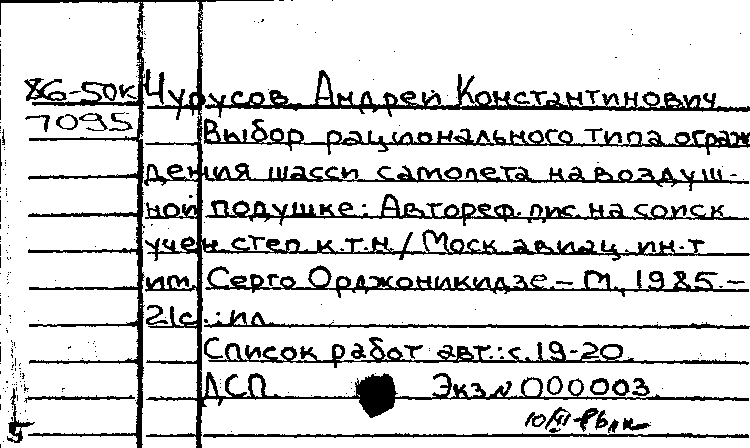 86-50к Чурусов, Андрей Константинович
7095 Выбор рационального типа ограж
дения шасси самолета на воздуш-
ной подушке: Автореф. дис. на соиск
учен степ к.т.н. / Моск авиац. ин-т
им. Серго Орджоникидзе. – М., 1985. –
21с.: ил.
Список работ авт.: с. 19-20.
ДСП. Экз № 000003.
5